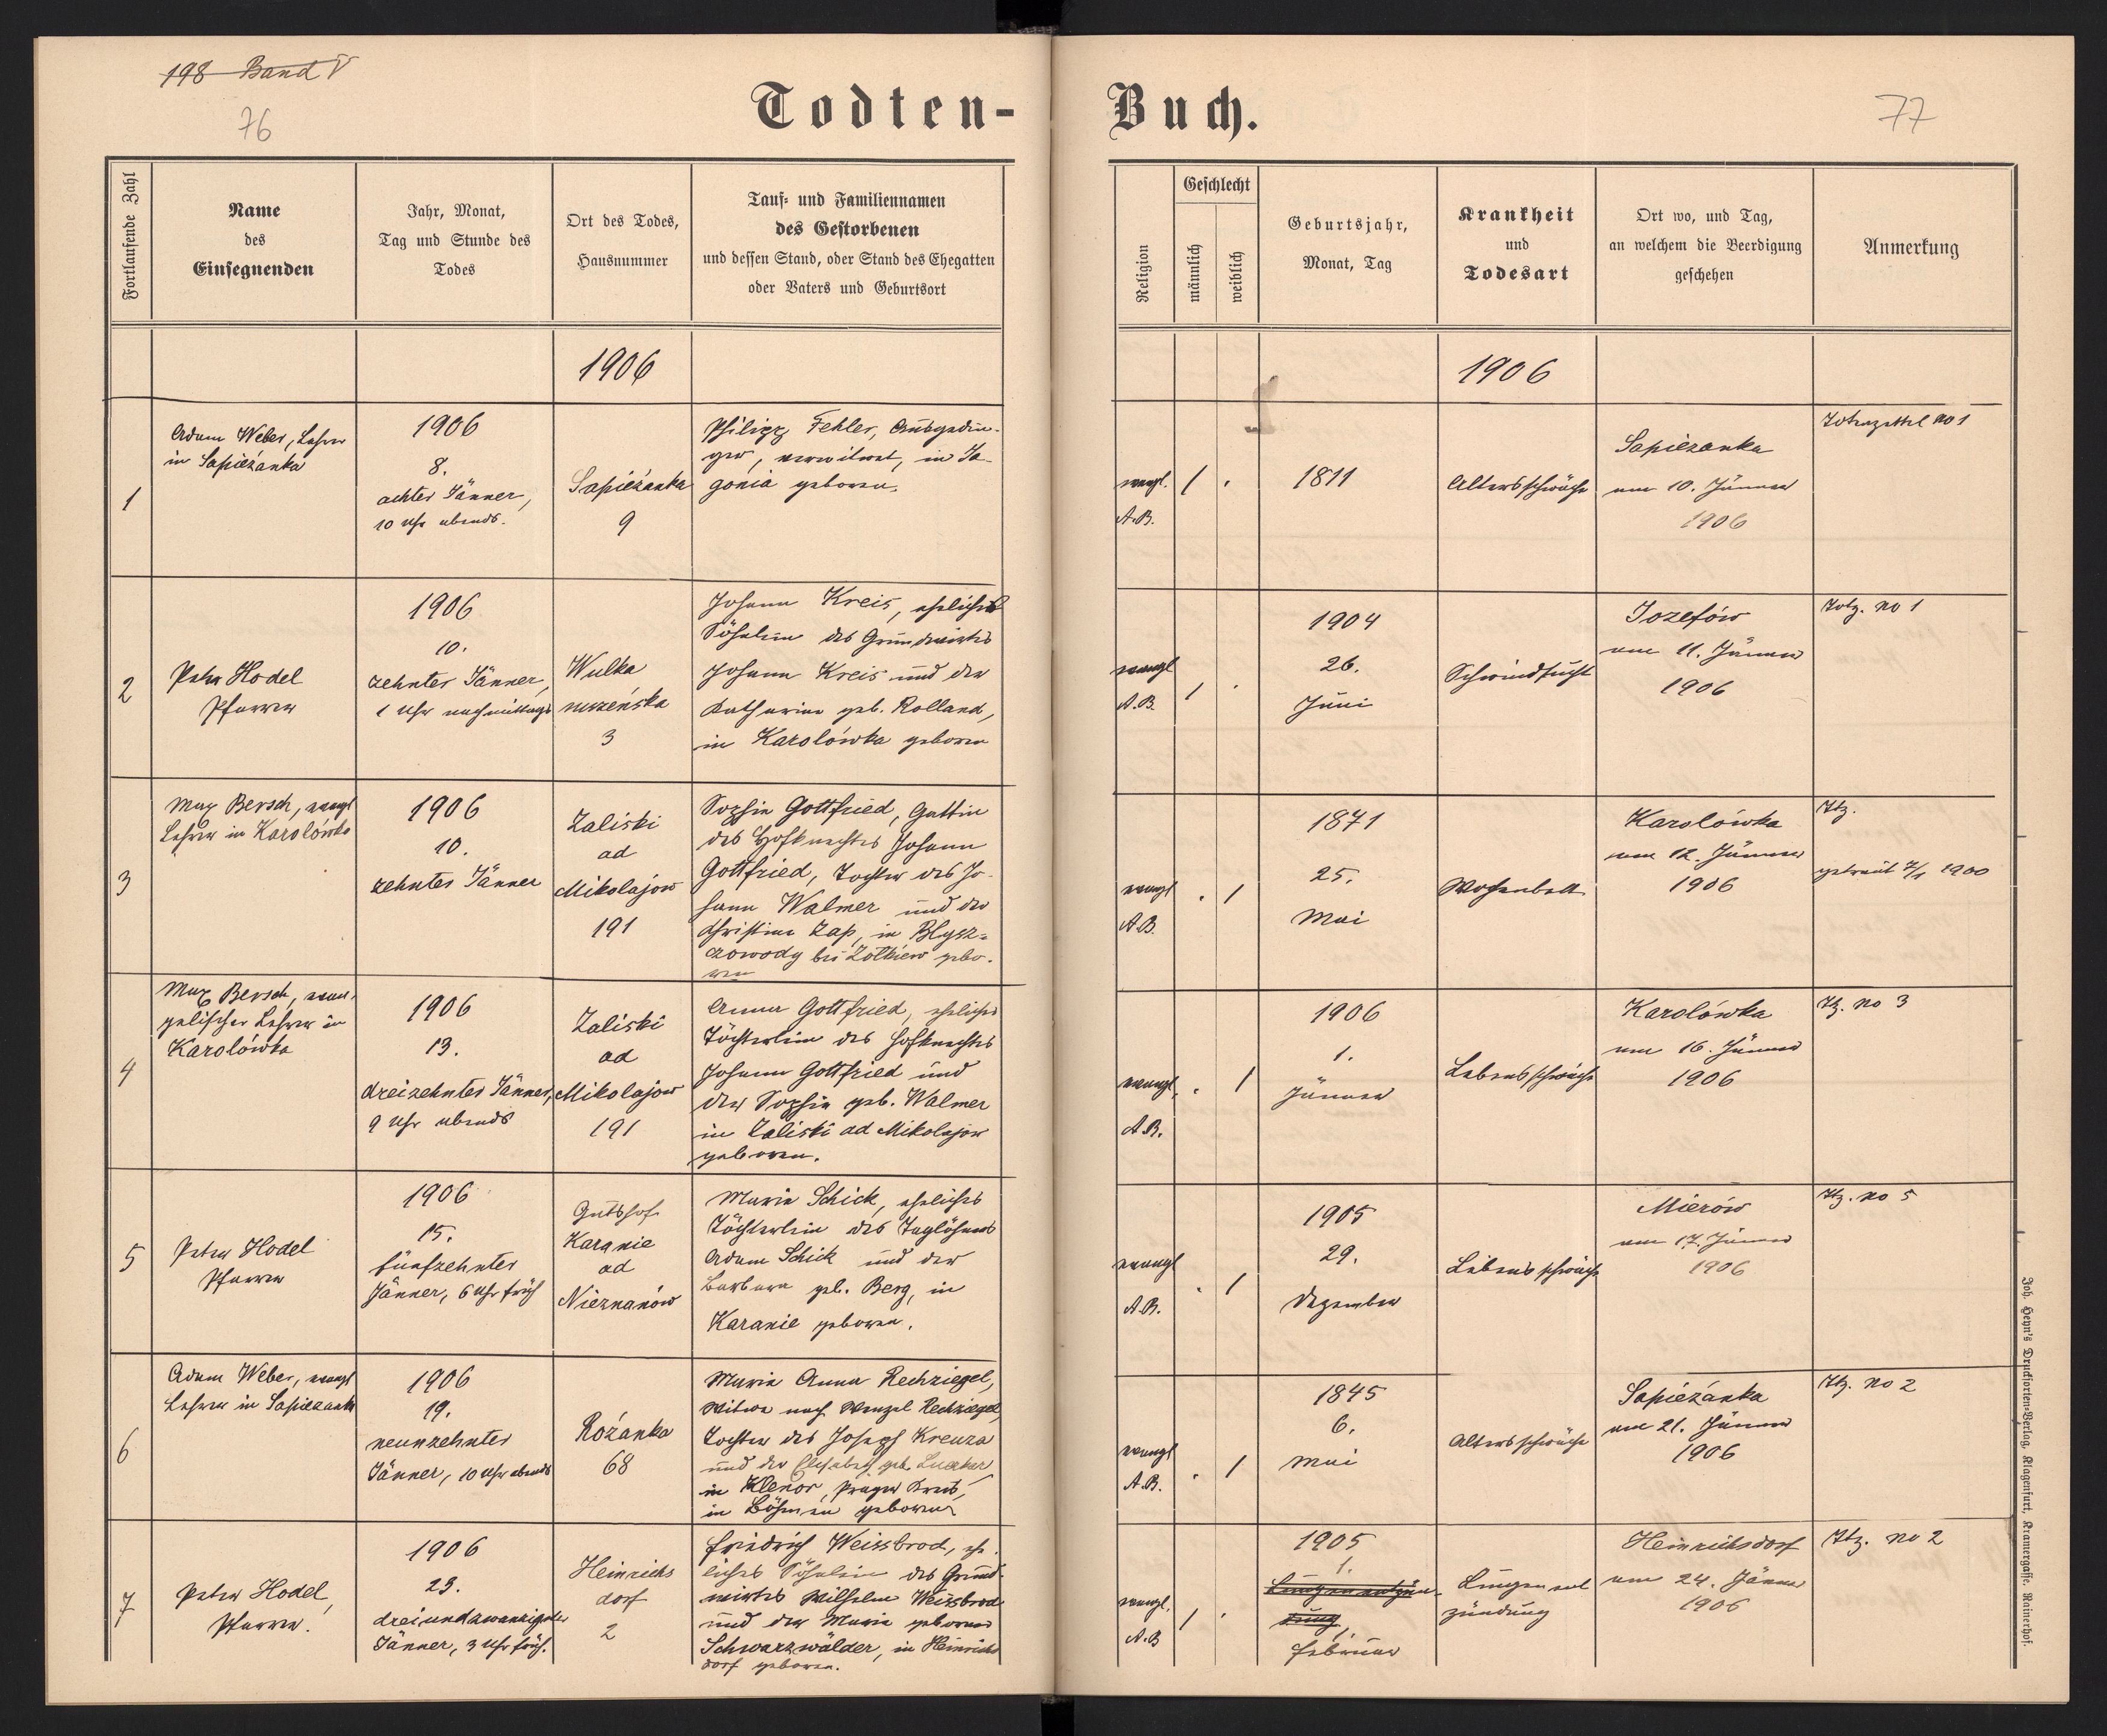 198 Band V
76
77
Todten-
Buch.
Fortlaufende Zahl
Name
des
Einsegnenden
Jahr, Monat,
Tag und Stunde des
Todes
Ort des Todes,
Hausnummer
Tauf- und Familiennamen
des Gestorbenen
und dessen Stand, oder Stand des Ehegatten
oder Vaters und Geburtsort
Religion
Geschlecht
männlich
weiblich
Geburtsjahr,
Monat, Tag
Krankheit
und
Todesart
Ort wo, und Tag,
an welchem die Beerdigung
geschehen
Anmerkung
1906
1906
1
Adam Weber, Lehrer
in Sapieżanka
1906
8.
achter Jänner,
10 Uhr abends.
Sapieżanka
9
Philipp Fehler, Ausgedin-
ger, verwitwet, in Ja-
gonia geboren.
evangl.
A.B.
1
1811
Altersschwäche
Sapiezanka
am 10. Jänner
1906
Totenzettel no 1
2
Peter Hodel
Pfarrer
1906
10.
zehnter Jänner,
1 Uhr nachmittags
Wulka
3
Johann Kreis, eheliches
Söhnlein des Grundwirtes
Johann Kreis und der
Katharina geb. Rolland,
in Karolówka geboren
evangl
A.B.
1
1904
26.
Juni
Schwindsucht
Jozefów
am 11. Jänner
1906
Totz. no 1
3
Max Bersch, evangl
Lehrer in Karolówka
1906
10.
zehnter Jänner
Zaliski
ad
Mikolajow
191
Sophie Gottfried, Gattin
des Hofknechtes Johann
Gottfried, Tochter des Jo-
hann Walmer und der
Christine Zap, in Blysz-
czowody bei Żołkiew gebo-
ren
evangl
A.B.
1
1871
25.
Mai
Wochenbett
Karolówka
am 12. Jänner
1906
Ttz.
getraut 7/1 1900
4
Max Bersch, evan-
gelischer Lehrer in
Karolówka
1906
13.
dreizehnter Jänner,
9 Uhr abends
Zaliski
ad
Mikolajow
191
Anna Gottfried, eheliches
Töchterlein des Hofknechtes
Johann Gottfried und
der Sophie geb. Walmer
in Zaliski ad Mikolajow
geboren.
evangl.
A.B.
1
1906
1.
Jänner
Lebensschwäche
Karolówka
am 16. Jänner
1906
Ttz. no 3
5
Peter Hodel
Pfarrer
1906
15.
fünfzehnter
Jänner, 6 Uhr früh
Gutshof
Karanie
ad
Nieznanów
Maria Schick, eheliches
Töchterlein des Taglöhners
Adam Schick und der
Barbara geb. Berg, in
Karanie geboren.
evangl
A.B.
1
1905
29.
Dezember
Lebensschwäche
Mierów
am 17. Jänner
1906
Ttz. no 5
6
Adam Weber, evangl
Lehrer in Sapiezanka
1906
19.
neunzehnter
Jänner, 10 Uhr abends
Rożanka
68
Maria Anna Rechziegel,
Witwe nach Wenzel Rechziegel,
Tochter des Joseph Kreuza
und der Elisabeth geb.
in Klenor, Prager Kreis,
in Böhmen geboren
evangl
A.B.
1
1845
6.
Mai
Altersschwäche
Sapieżanka
am 21. Jänner
1906
Ttz. no 2
7
Peter Hodel,
Pfarrer.
1906
23.
dreiundzwanzigster
Jänner, 3 Uhr früh.
Heinrichs
dorf
2
Friedrich Weissbrod, ehe-
liches Söhnlein des Grund-
wirtes Wilhelm Weissbrod
und der Maria geborene
Schwarzwälder, in Heinrichs
dorf geboren.
evangl.
A.B
1
1905
1.
Lungenentzün-
dung,
Februar
Lungenent
zündung
Heinrichsdorf
am 24. Jänner
1906
Ttz. no 2
Joh. Heyn's Drucksorten-Verlag, Klagenfurt, Kramergasse, Rainerhof.